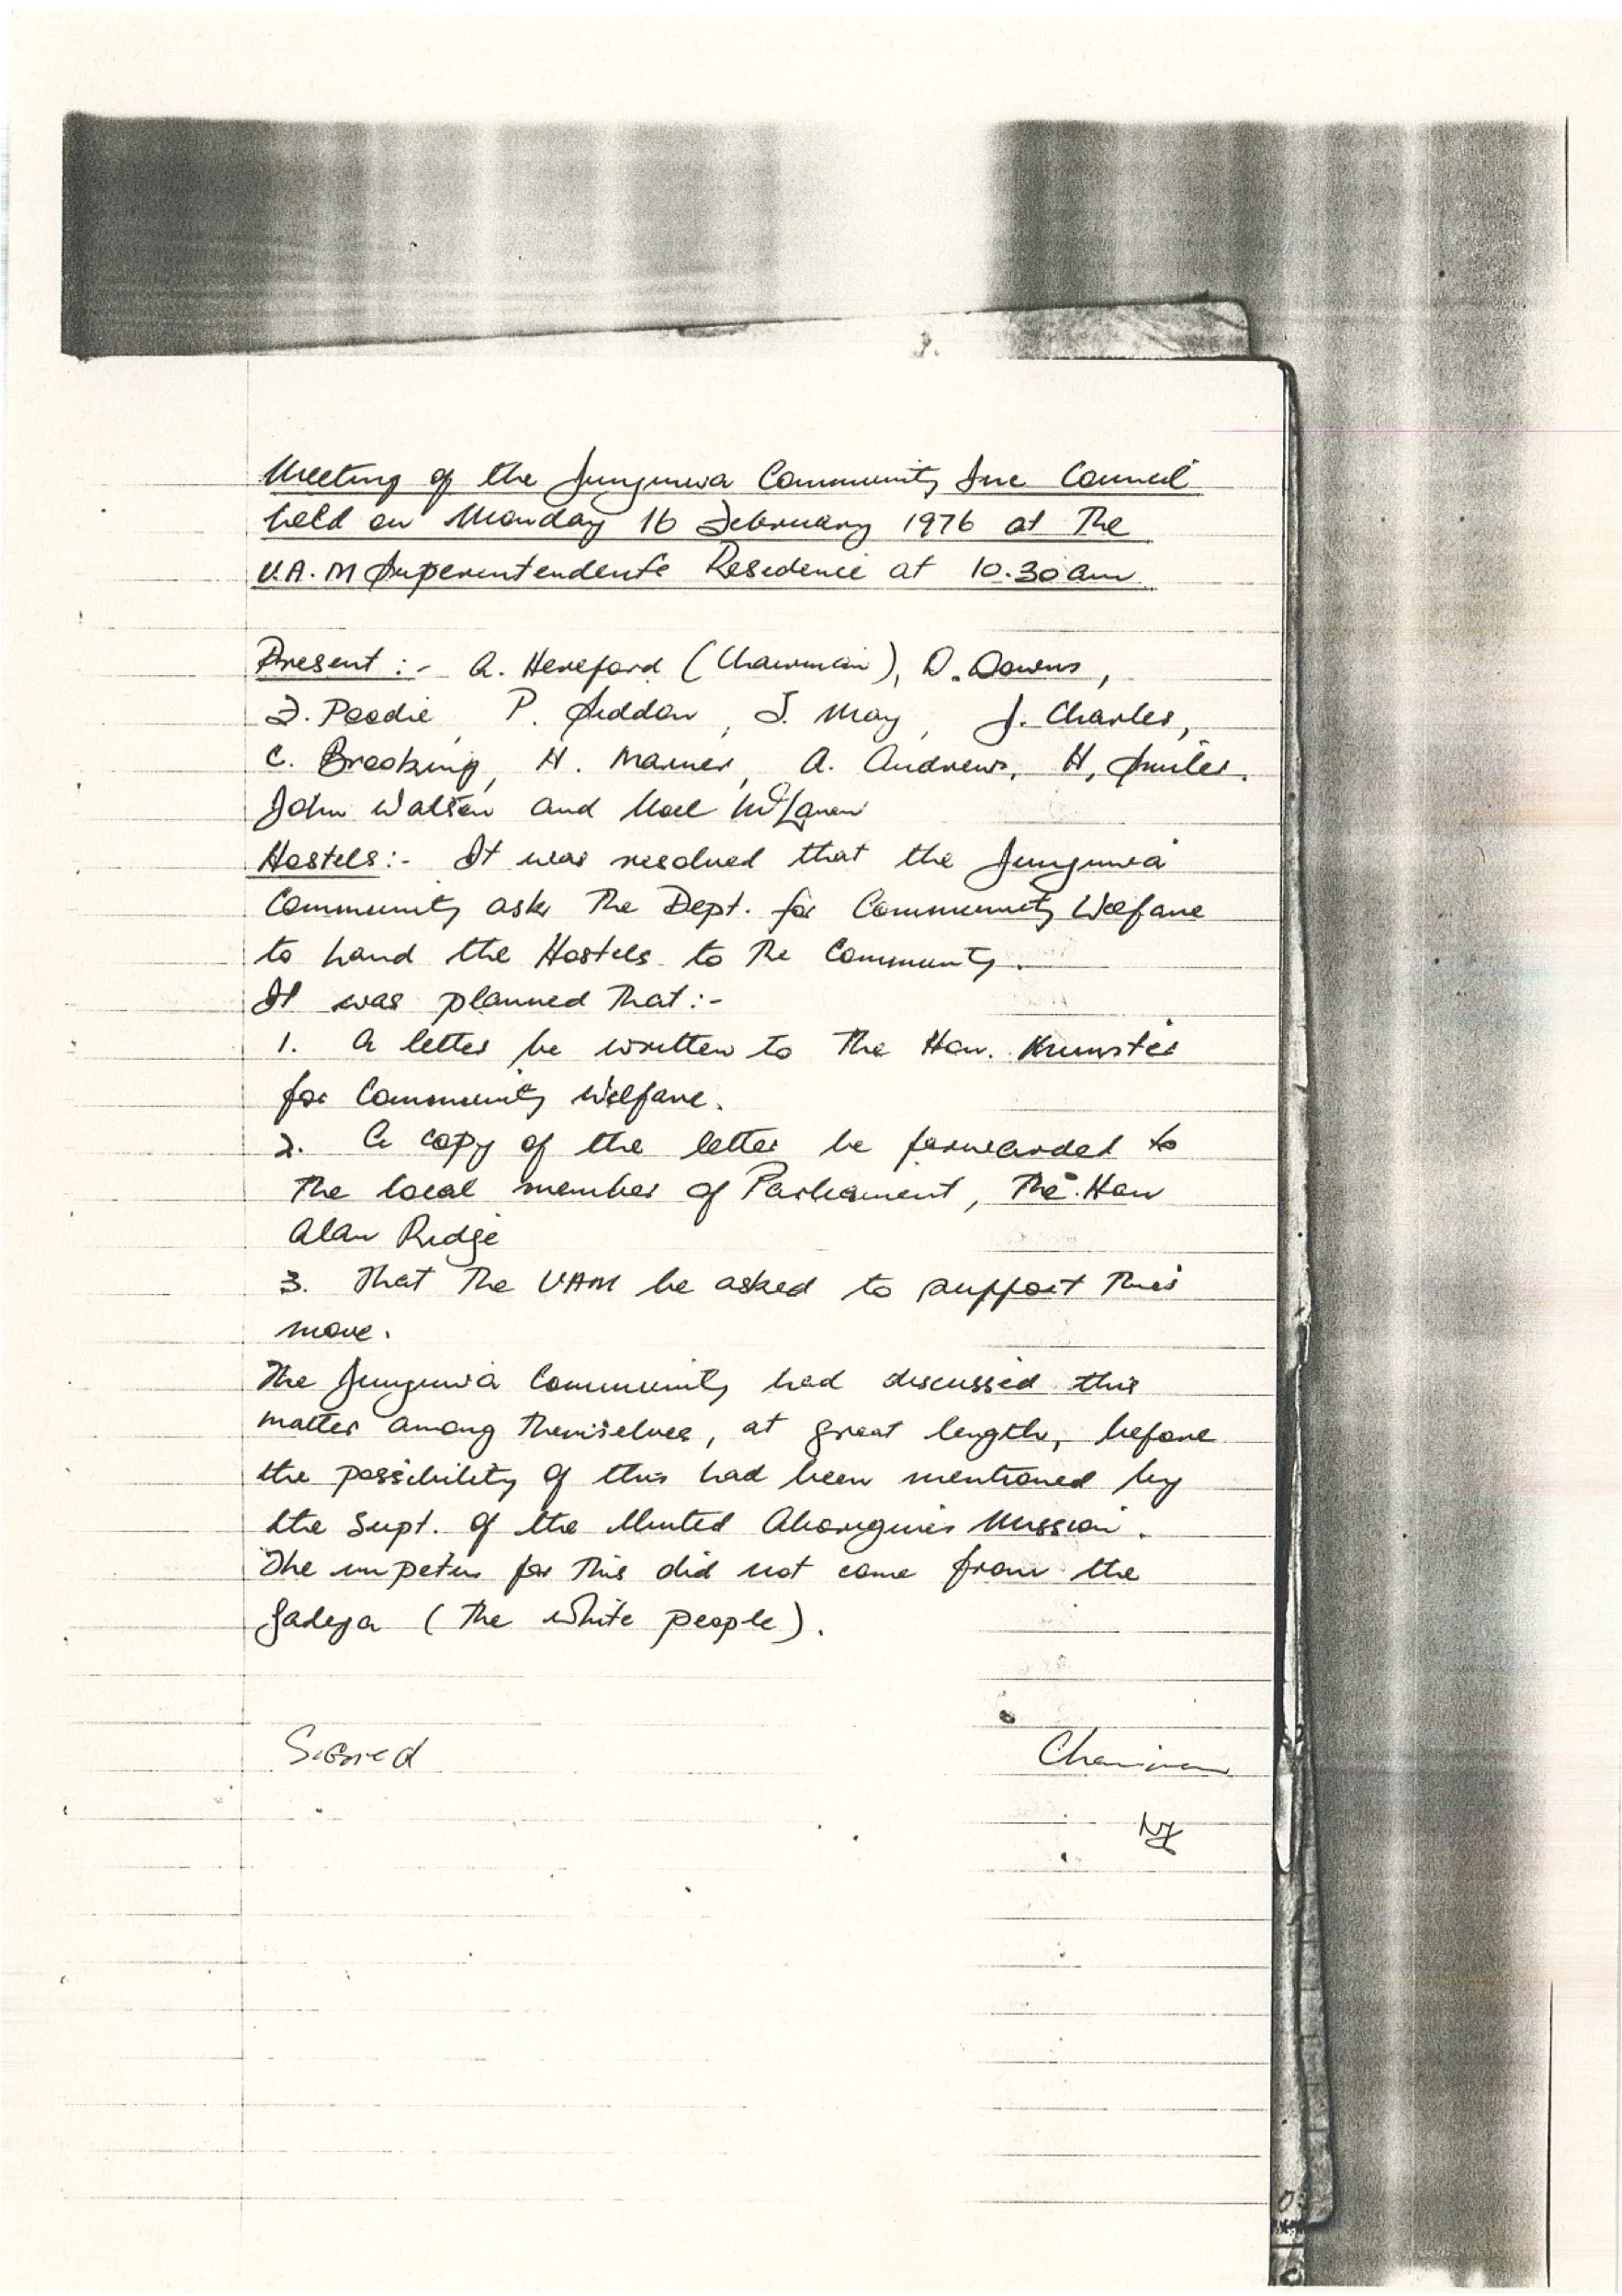 Meeting of the Junjuwa Community Inc Council
held on Monday 16 February 1976 at The
U.A.M Superintendents Residence at 10.30 am
Present :- A. Hereford (Chairman), D. Downs,
P. Seddon, J. May, J. Charles,
C. Brooking, H. A. Andrews, H, Smiler,
John Watson and
Hostels :- It was resolved that the Junjuwa
Community ask The Dept. for Community Welfare
to hand the Hostels to The Community.
It was planned That :-
1. A letter be written to The Hon. Minister
for Community Welfare.
2. A copy of the letter be forwarded to
The local member of Parliament, The Hon
Alan Ridge
3. That The UAM be asked to support This
move.
The Junjuwa Community had discussed this
matter among Themselves, at great length, before
the possibility of this had been mentioned by
the Supt. of the United Aborigines Mission.
The impetus for This did not come from the
gadeya (The white people).
Signed Chairman